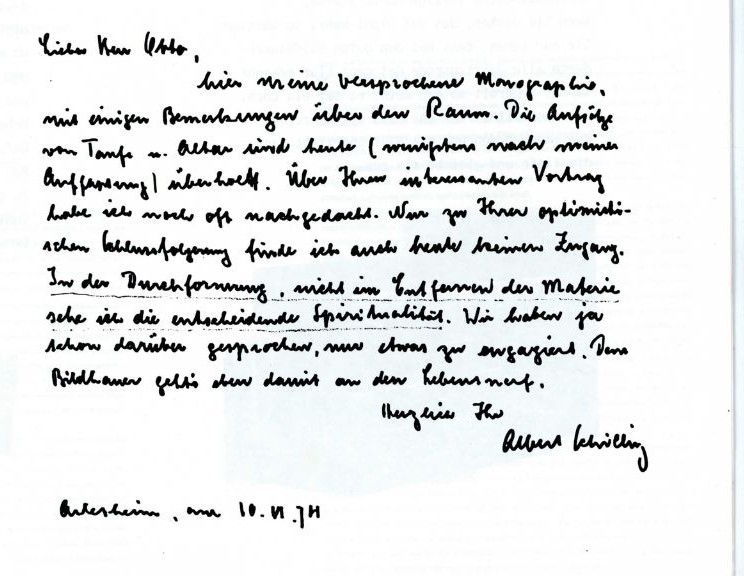 Lieber Herr Otto,
hier meine versprochene Monographie,
mit einigen Bemerkungen über den Raum. Die Aufsätze
von Taufe u. Altar sind heute (wenigstens nach meiner
Auffassung) überholt. Über Ihren interessanten Vortrag
habe ich noch oft nachgedacht. Nur zu Ihrer optimisti-
schen Schlussfolgerung finde ich auch heute keinen Zugang.
In der Durchformung, nicht im Entfernen der Materie
sehe ich die entscheidende Spiritualität. Wir haben ja
schon darüber gesprochen, nur etwas zu engagiert. Dem
Bildhauer geht's eben damit an den Lebensnerf.
Herzlich Ihr
Albert Schilling
Arlesheim, am 10. VI. 71